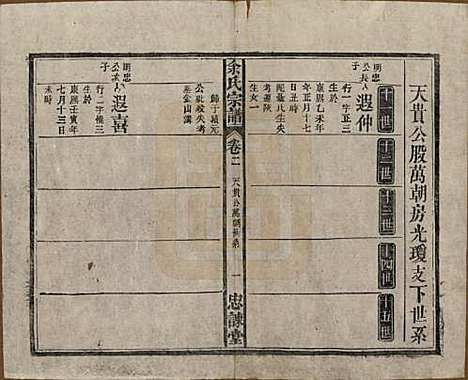 天貴公股萬朝房光瓊支下世系
十一世
十二世
十三世
十四世
十五世
明忠公長子
遐仲
行一字正三
生於
康熙乙未年
正月十七
日丑時
配
生失
生女一
余氏宗譜
卷二
天貴公萬朝世系
一
忠諫堂
歸于
公妣歿失考
金山
明忠公次子
遐喜
行二字
三
生於
康熙壬子年
七月十三日
未時